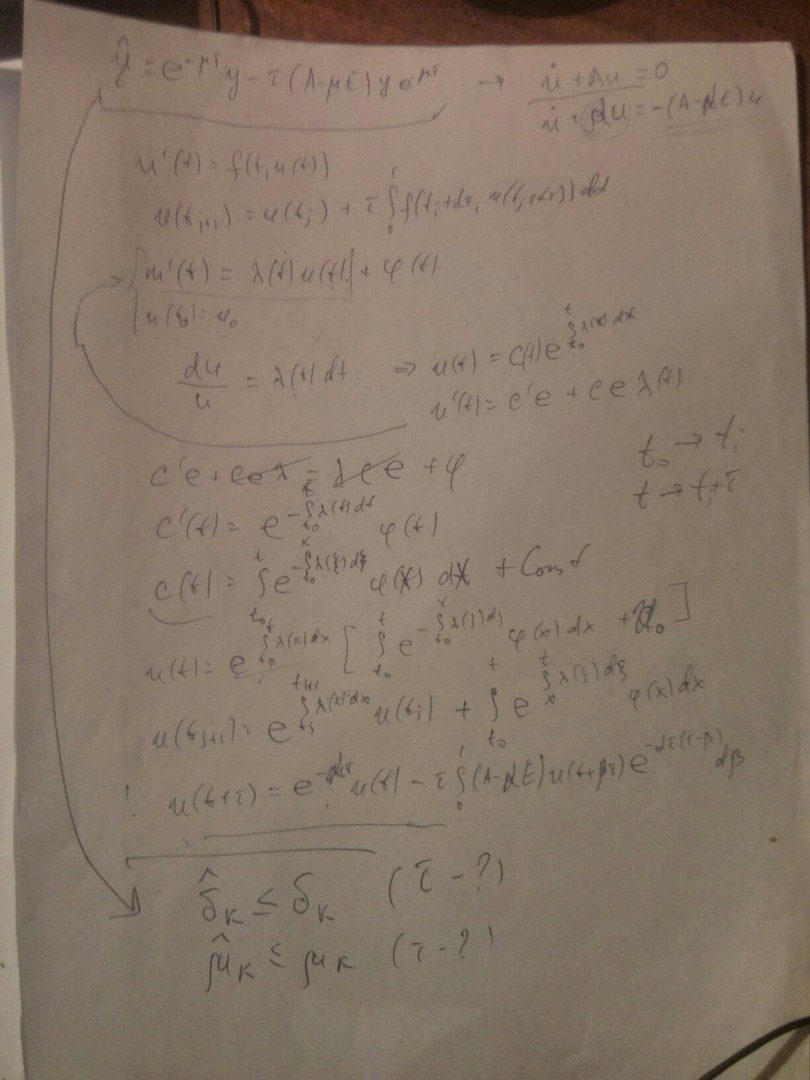 ŷ = e^{-μτ} y - τ(A-μE) y e^{-μτ} → u̇ + Au = 0
u̇ + αu = -(A-αE)u
u'(t) = f(t, u(t))
u(t_{j+1}) = u(t_j) + τ ∫_0^1 f(t_j+ατ, u(t_j+ατ)) dα
u'(t) = λ(t)u(t) + φ(t)
u(t_0) = u_0
du/u = λ(t) dt ⇒ u(t) = C(t) e^{∫_{t_0}^{t} λ(x) dx}
u'(t) = c'e + c e λ(t)
t_0 → t_j
c'e + ceλ = λce + φ
t → t_j+τ
c'(t) = e^{-∫_{t_0}^{t} λ(t) dt} φ(t)
c(t) = ∫_{t_0}^{t} e^{-∫_{t_0}^{x} λ(ξ) dξ} φ(x) dx + Const
u(t) = e^{∫_{t_0}^{t} λ(x) dx} [ ∫_{t_0}^{t} e^{-∫_{t_0}^{x} λ(ξ) dξ} φ(x) dx + u_0 ]
u(t_{j+1}) = e^{∫_{t_j}^{t_{j+1}} λ(x) dx} u(t_j) + ∫_{t_0}^{t} e^{∫_{x}^{t} λ(ξ) dξ} φ(x) dx
! u(t+τ) = e^{-ατ} u(t) - τ ∫_0^1 (A-αE) u(t+βτ) e^{-ατ(1-β)} dβ
δ̂_k ≤ δ_k (τ - ?)
μ̂_k ≤ μ_k (τ - ?)